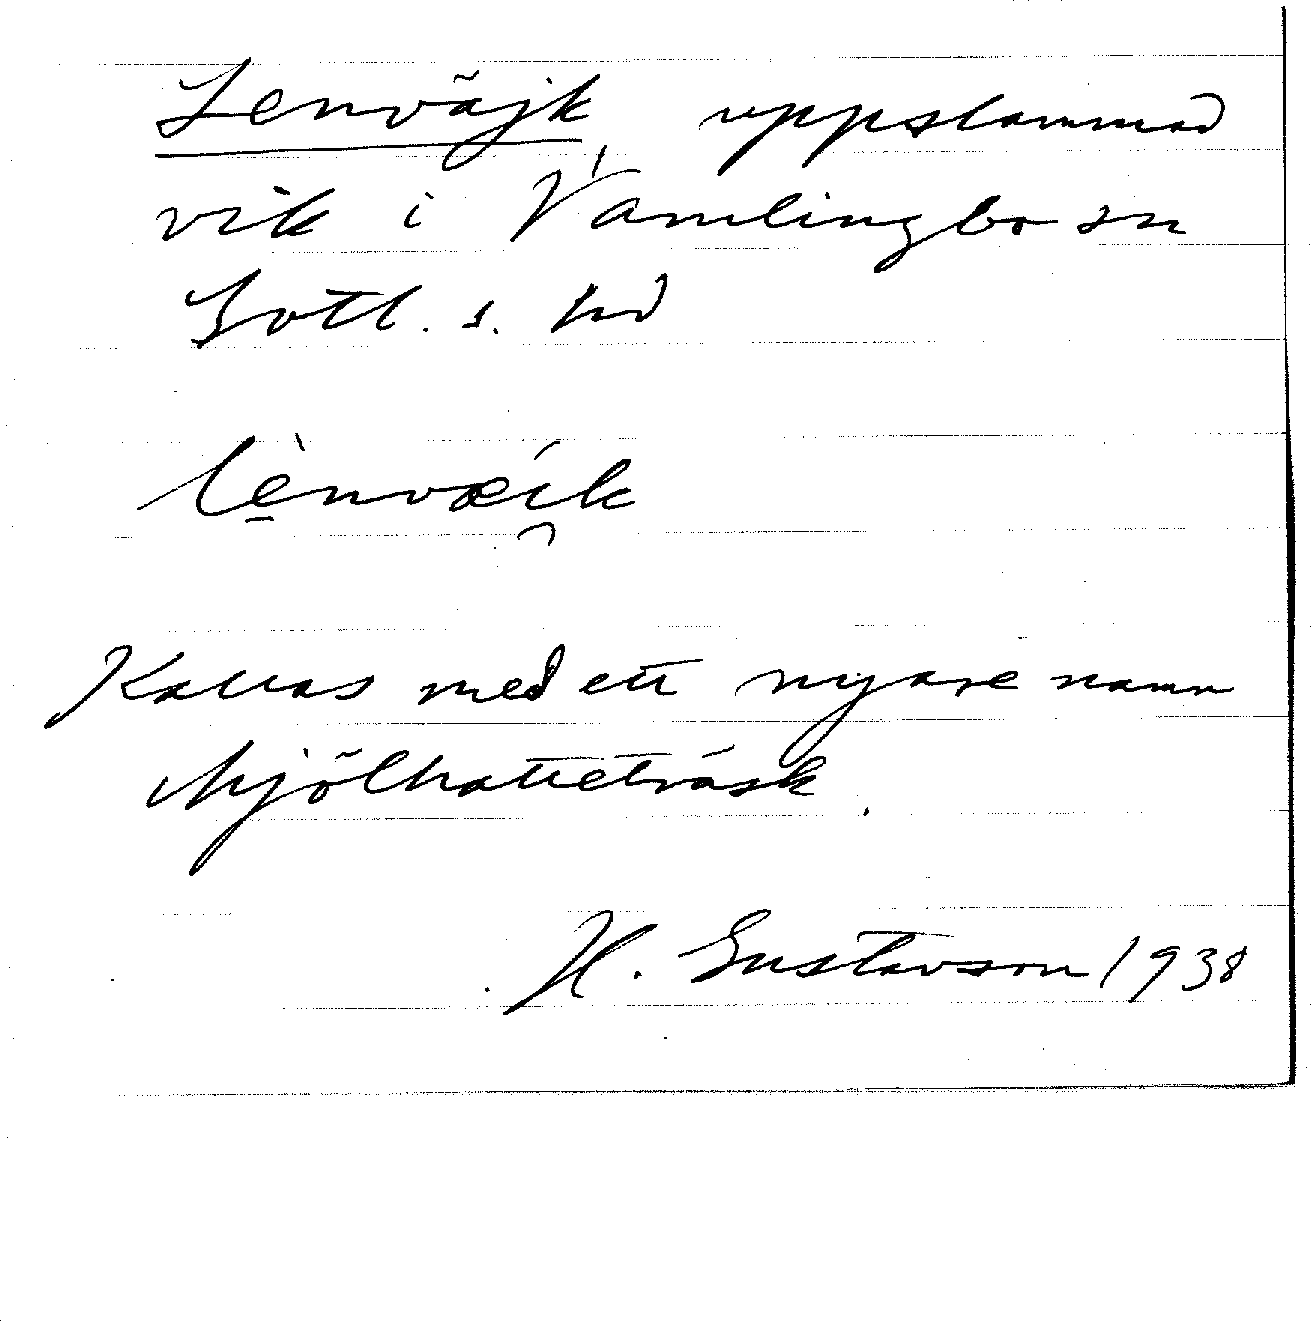 Lenväjk, uppslammad
vik i Vamlingbo sn
Gotl. s. hd
lènvæík
Kallas med ett nyare namn
Mjölhatteträsk.
H. Gustavson 1938